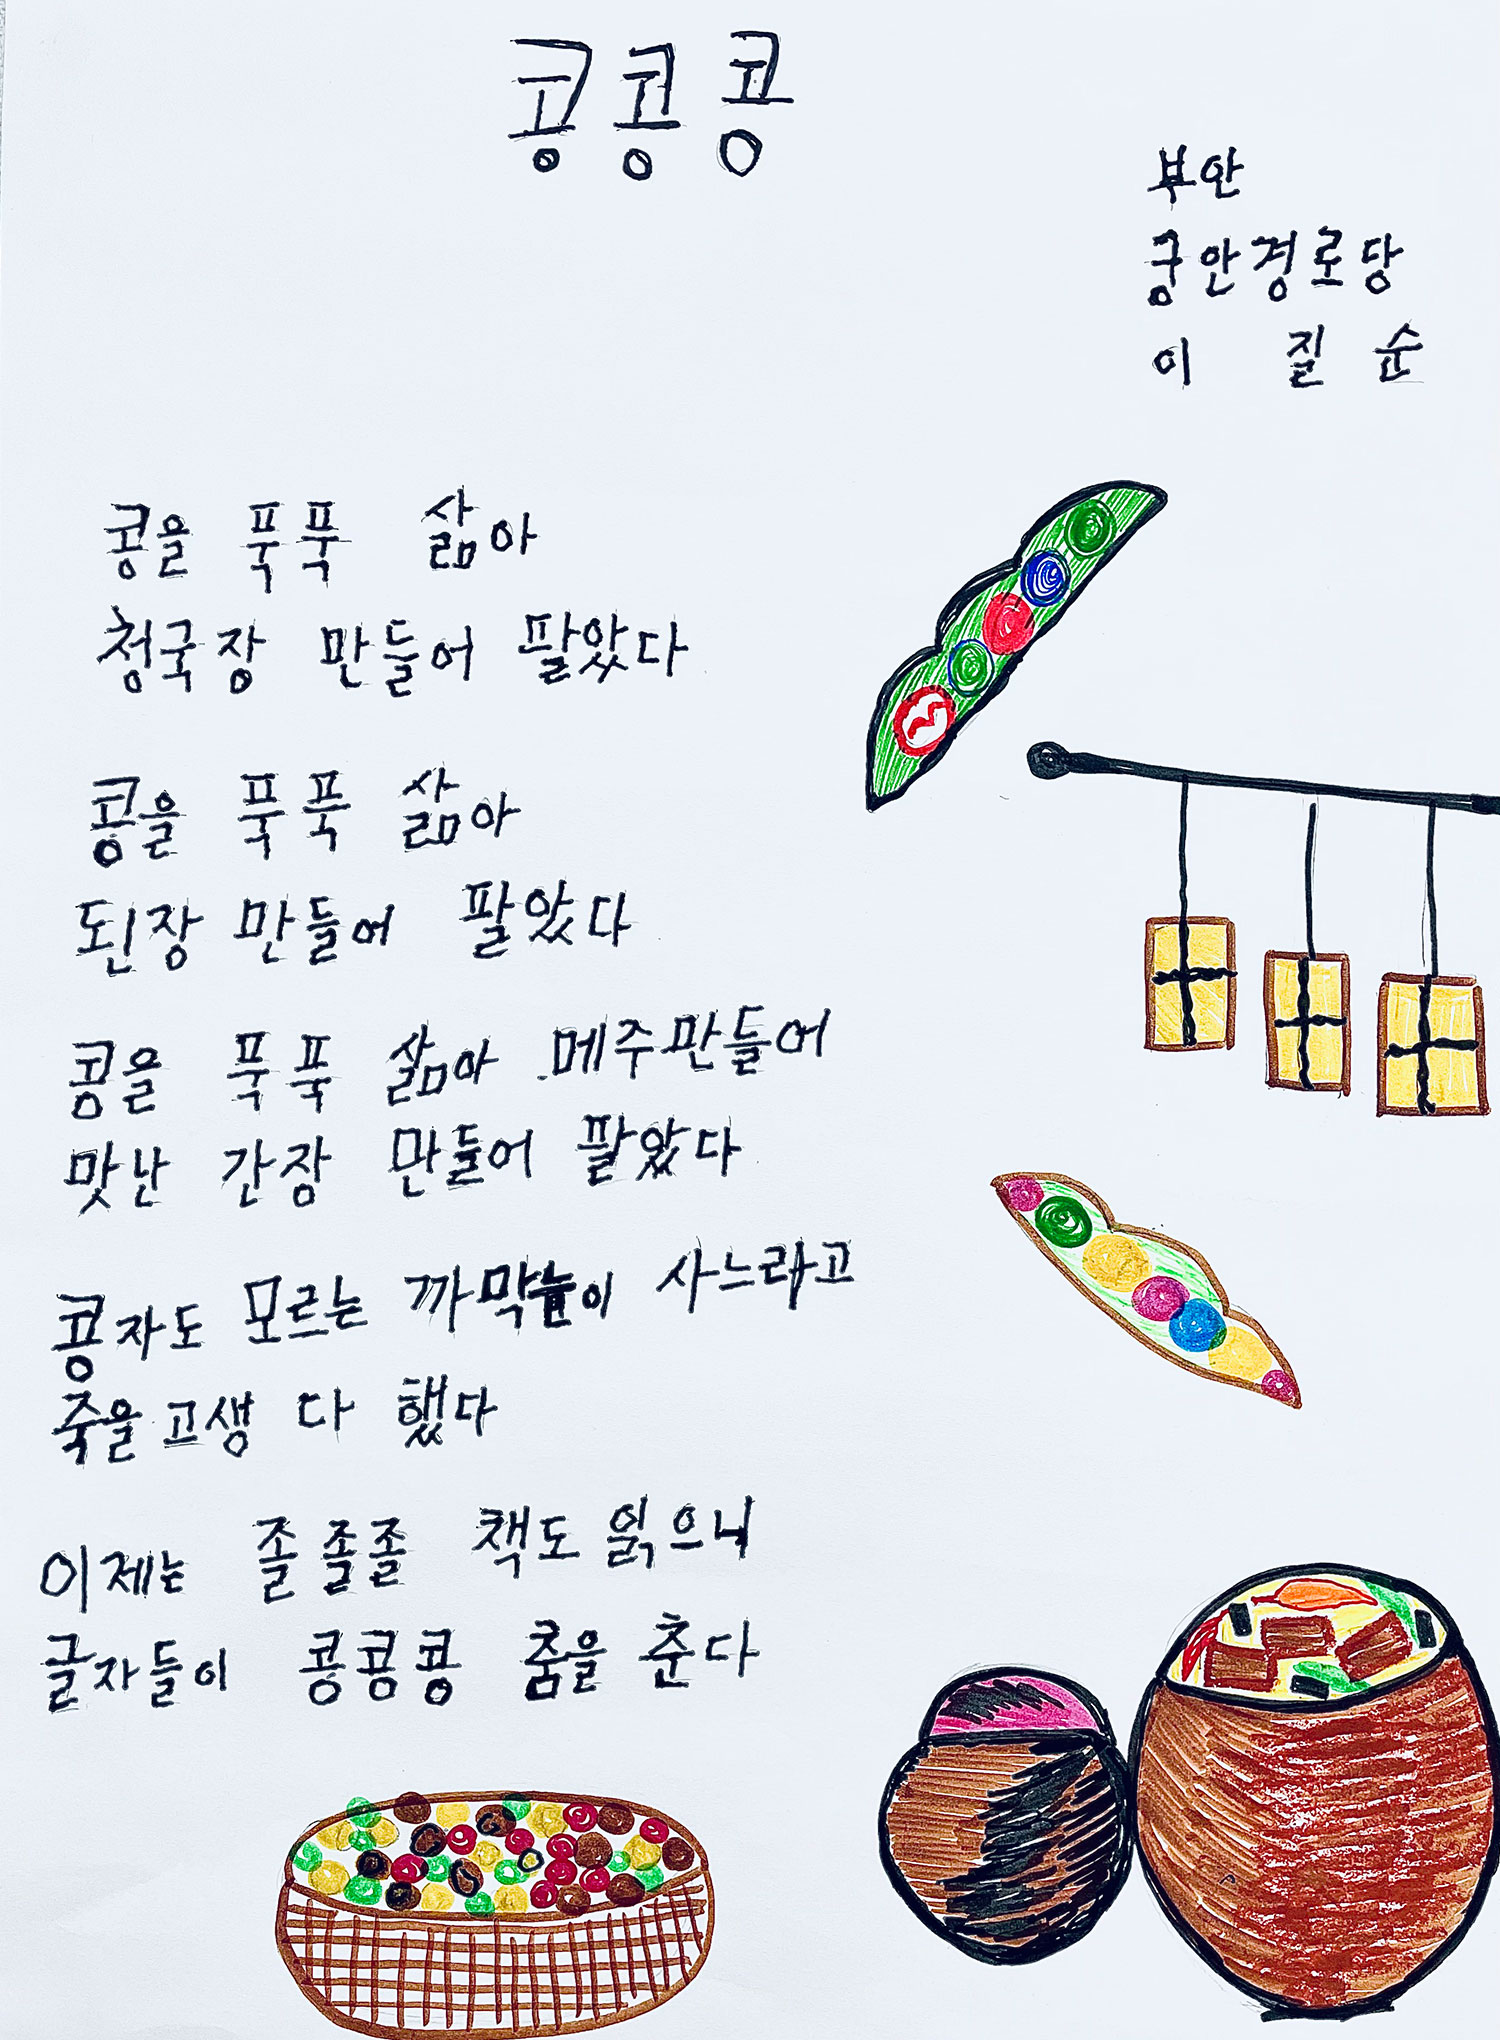 콩콩콩
부안
궁안경로당
이 질순
콩을 푹푹 삶아
청국장 만들어 팔았다
콩을 푹푹 삶아
된장 만들어 팔았다
콩을 푹푹 삶아 메주만들어
맛난 간장 만들어 팔았다
콩자도 모르는 까막눈이 사느라고
죽을고생 다 했다
이제는 졸졸졸 책도 읽으니
글자들이 콩콩콩 춤을 춘다